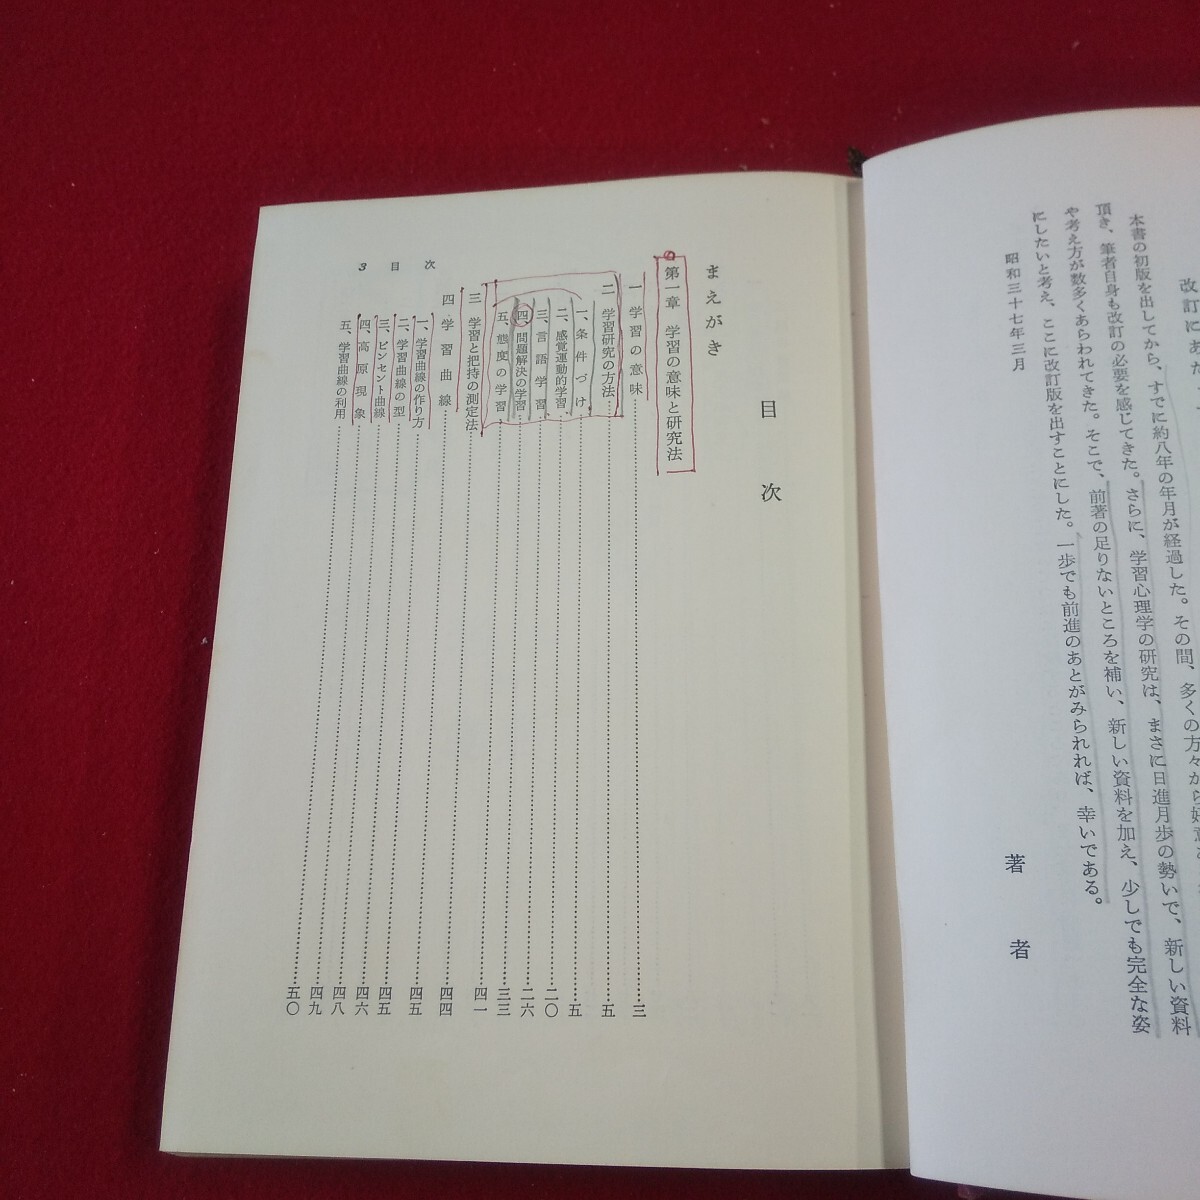 改訂にあた
本書の初版を出してから、すでに約八年の年月が経過した。その間、多くの方々から好意
頂き、筆者自身も改訂の必要を感じてきた。さらに、学習心理学の研究は、まさに日進月歩の勢いで、新しい資料
や考え方が数多くあらわれてきた。そこで、前著の足りないところを補い、新しい資料を加え、少しでも完全な姿
にしたいと考え、ここに改訂版を出すことにした。一歩でも前進のあとがみられれば、幸いである。
昭和三十七年三月
著者
目次
まえがき
第一章 学習の意味と研究法
一 学習の意味……三
二 学習研究の方法……五
一、条件づけ……五
二、感覚運動的学習……二〇
三、言語学習……二六
四、問題解決の学習……三三
五、態度の学習……四一
三 学習と把持の測定法……四四
四 学習曲線……四五
一、学習曲線の作り方……四五
二、学習曲線の型……四六
三、ビンセント曲線……四八
四、高原現象……四九
五、学習曲線の利用……五〇
3 目次